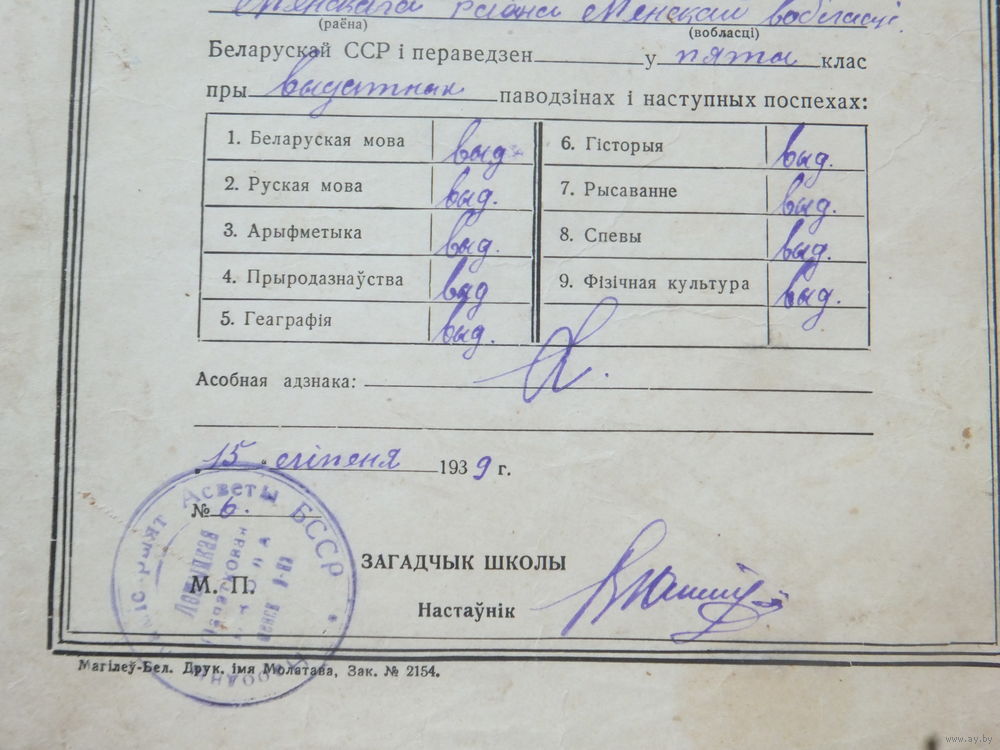 Мянскага раёна Менскай вобласці.
(раёна) (вобласці)
Беларускай ССР і пераведзен у пяты клас
пры выдатных паводзінах і наступных поспехах:
1. Беларуская мова выд. 6. Гісторыя выд.
2. Руская мова выд. 7. Рысаванне выд.
3. Арыфметыка выд. 8. Спевы выд.
4. Прыродазнаўства выд 9. Фізічная культура выд.
5. Геаграфія выд.
Асобная адзнака:
15 1939 г.
№ 6.
Асветы БССР
ЗАГАДЧЫК ШКОЛЫ
М. П.
Настаўнік
Магілеў-Бел. Друк. імя Молатава, Зак. № 2154.
www.ay.by